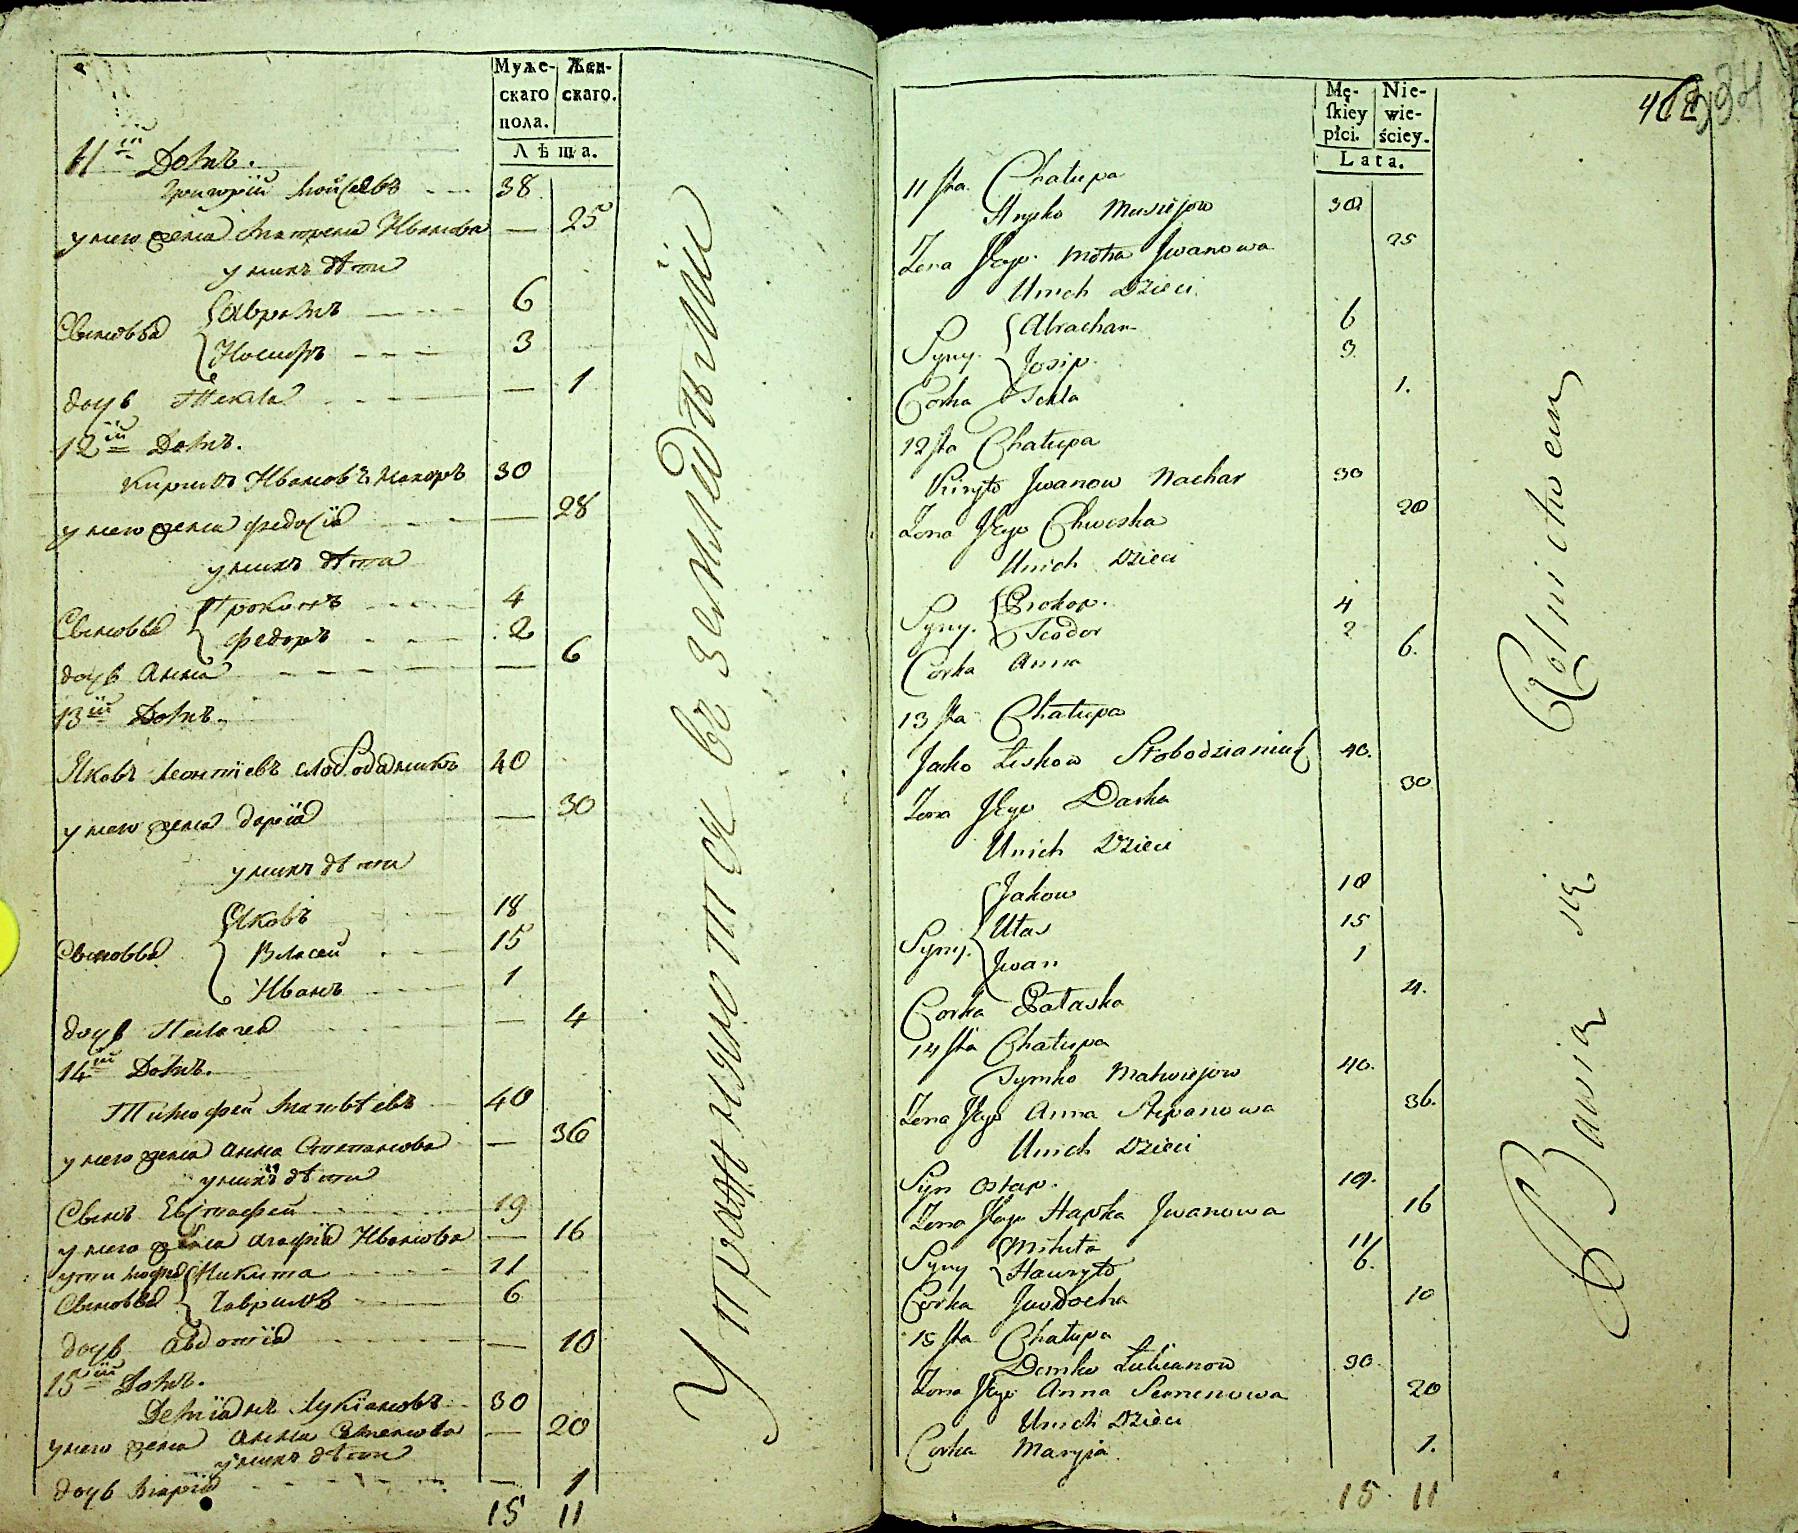 Муже-
скаго
пола.
Жен-
скаго.
Лѣта.
11й Домъ.
Григорій Мойсеевъ 38
у него жена Матрена Иванова — 25
у нихъ дѣти
Сыновья
Абрамъ 6
Иосифъ 3
дочь Текла — 1
12й Домъ.
Кирило Ивановъ Нахоръ 30
у него жена Федосія — 28
у нихъ дѣти
Сыновья
Прокопъ 4
Федоръ 2
дочь Анна — 6
13й Домъ.
Яковъ Леонтіевъ Слободяникъ 40
у него жена Дарія — 30
у нихъ дѣти
Сыновья
Яковъ 18
Власей 15
Иванъ 1
дочь Пелагея — 4
14й Домъ.
Тимофей Матвѣевъ 40
у него жена Анна Степанова — 36
у нихъ дѣти
Сынъ Евстафей 19
у него жена Агафія Иванова — 16
у тимофея Никита 11
Сыновья Гаврило 6
дочь Авдотія — 10
15й Домъ.
Деміянъ Лукіановъ 30
у него жена Анна Семенова — 20
у нихъ дѣти
дочь Марія — 1
15 11
Упражняются въ земледѣліи
Mę-
ſkiey
płci.
Nie-
wie-
ściey.
Lata.
11sta Chałupa
Hryćko Musiejow 38
Zona Jego Motra Jwanowa 25
Unich Dzieci
Syny.
Abracham 6
Josip. 3
Corka Tekla 1.
12sta Chałupa
Kiryło Jwanow Nachar 30
Zona Jego Chweśka 28
Unich Dzieci
Syny.
Prokop. 4
Teodor 2
Corka Anna 6.
13sta Chałupa
Jaśko Leśkow Słobodzianiuk 40.
Zona Jego Darka 30
Unich Dzieci
Syny.
Jakow 18
Ułas 15
Jwan 1
Corka Pałaska 4.
14sta Chałupa
Tymko Matwiejow 40.
Zona Jego Anna Stepanowa 36.
Unich Dzieci
Syn Ostap. 19.
Zona Jego Hapka Jwanowa 16
Syny
Mikita 11
Hawryło 6.
Corka Jewdocha 10
15sta Chałupa
Demko Łukianow 30.
Zona Jego Anna Semenowa 20
Unich Dzieci
Corka Maryja 1.
15 11
Bawią się Rolnictwem